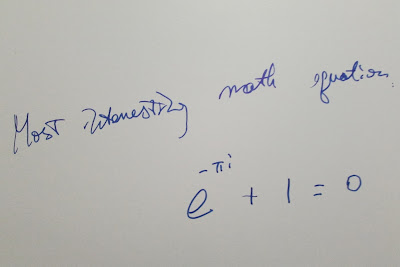 Most interesting math equation.
e^{-πi} + 1 = 0